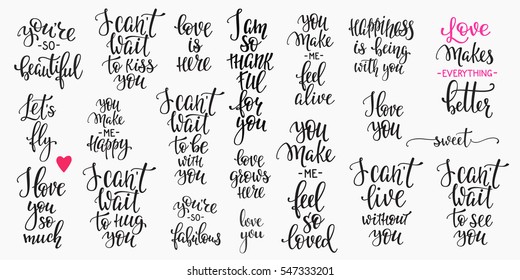 you're
-SO-
beautiful
Let's
fly
I love
you
so
much
I can't
wait
to kiss
you
you
Make
-ME-
Happy
I can't
wait
to hug
you
love
is
here
I can't
wait
to be
with
you
you're
-SO-
fabulous
I am
so
thank
ful
for
you
love
grows
here
love
you
you
Make
-ME-
feel
alive
you
Make
-ME-
feel
so
loved
Happiness
is being
with you
I love
you
I can't
live
without
you
Love
MAKES
-EVERYTHING-
better
sweet
I can't
wait
to see
you
shutterstock
IMAGE ID: 547333201
www.shutterstock.com